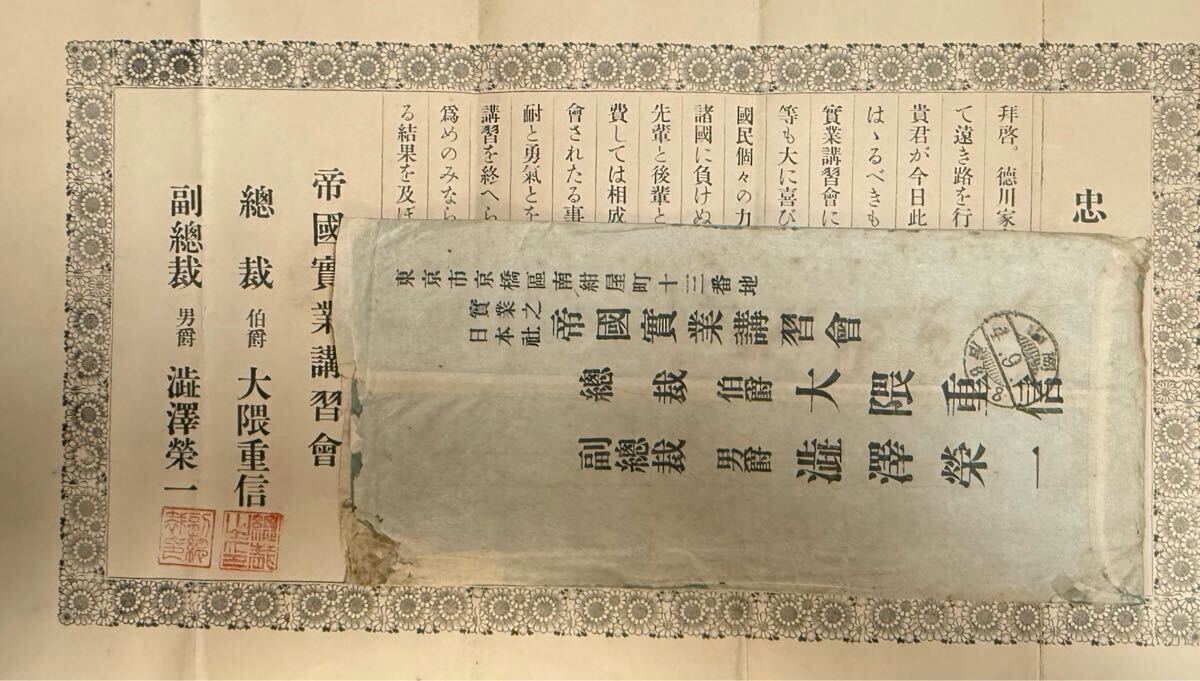 忠
拝啓。徳川家
て遠き路を行
貴君が今日此
はゝるべきも
實業講習會に
等も大に喜び
國民個々の力
諸國に負けぬ
先輩と後輩と
費しては相成
會されたる事
耐と勇氣とを
講習を終へら
爲めのみなら
る結果を及ぼ
帝國實業講習會
總裁 伯爵 大隈重信
副總裁 男爵 澁澤榮一
東京市京橋區南紺屋町十三番地
實業之日本社 帝國實業講習會
總裁 伯爵 大隈重信
副總裁 男爵 澁澤榮一